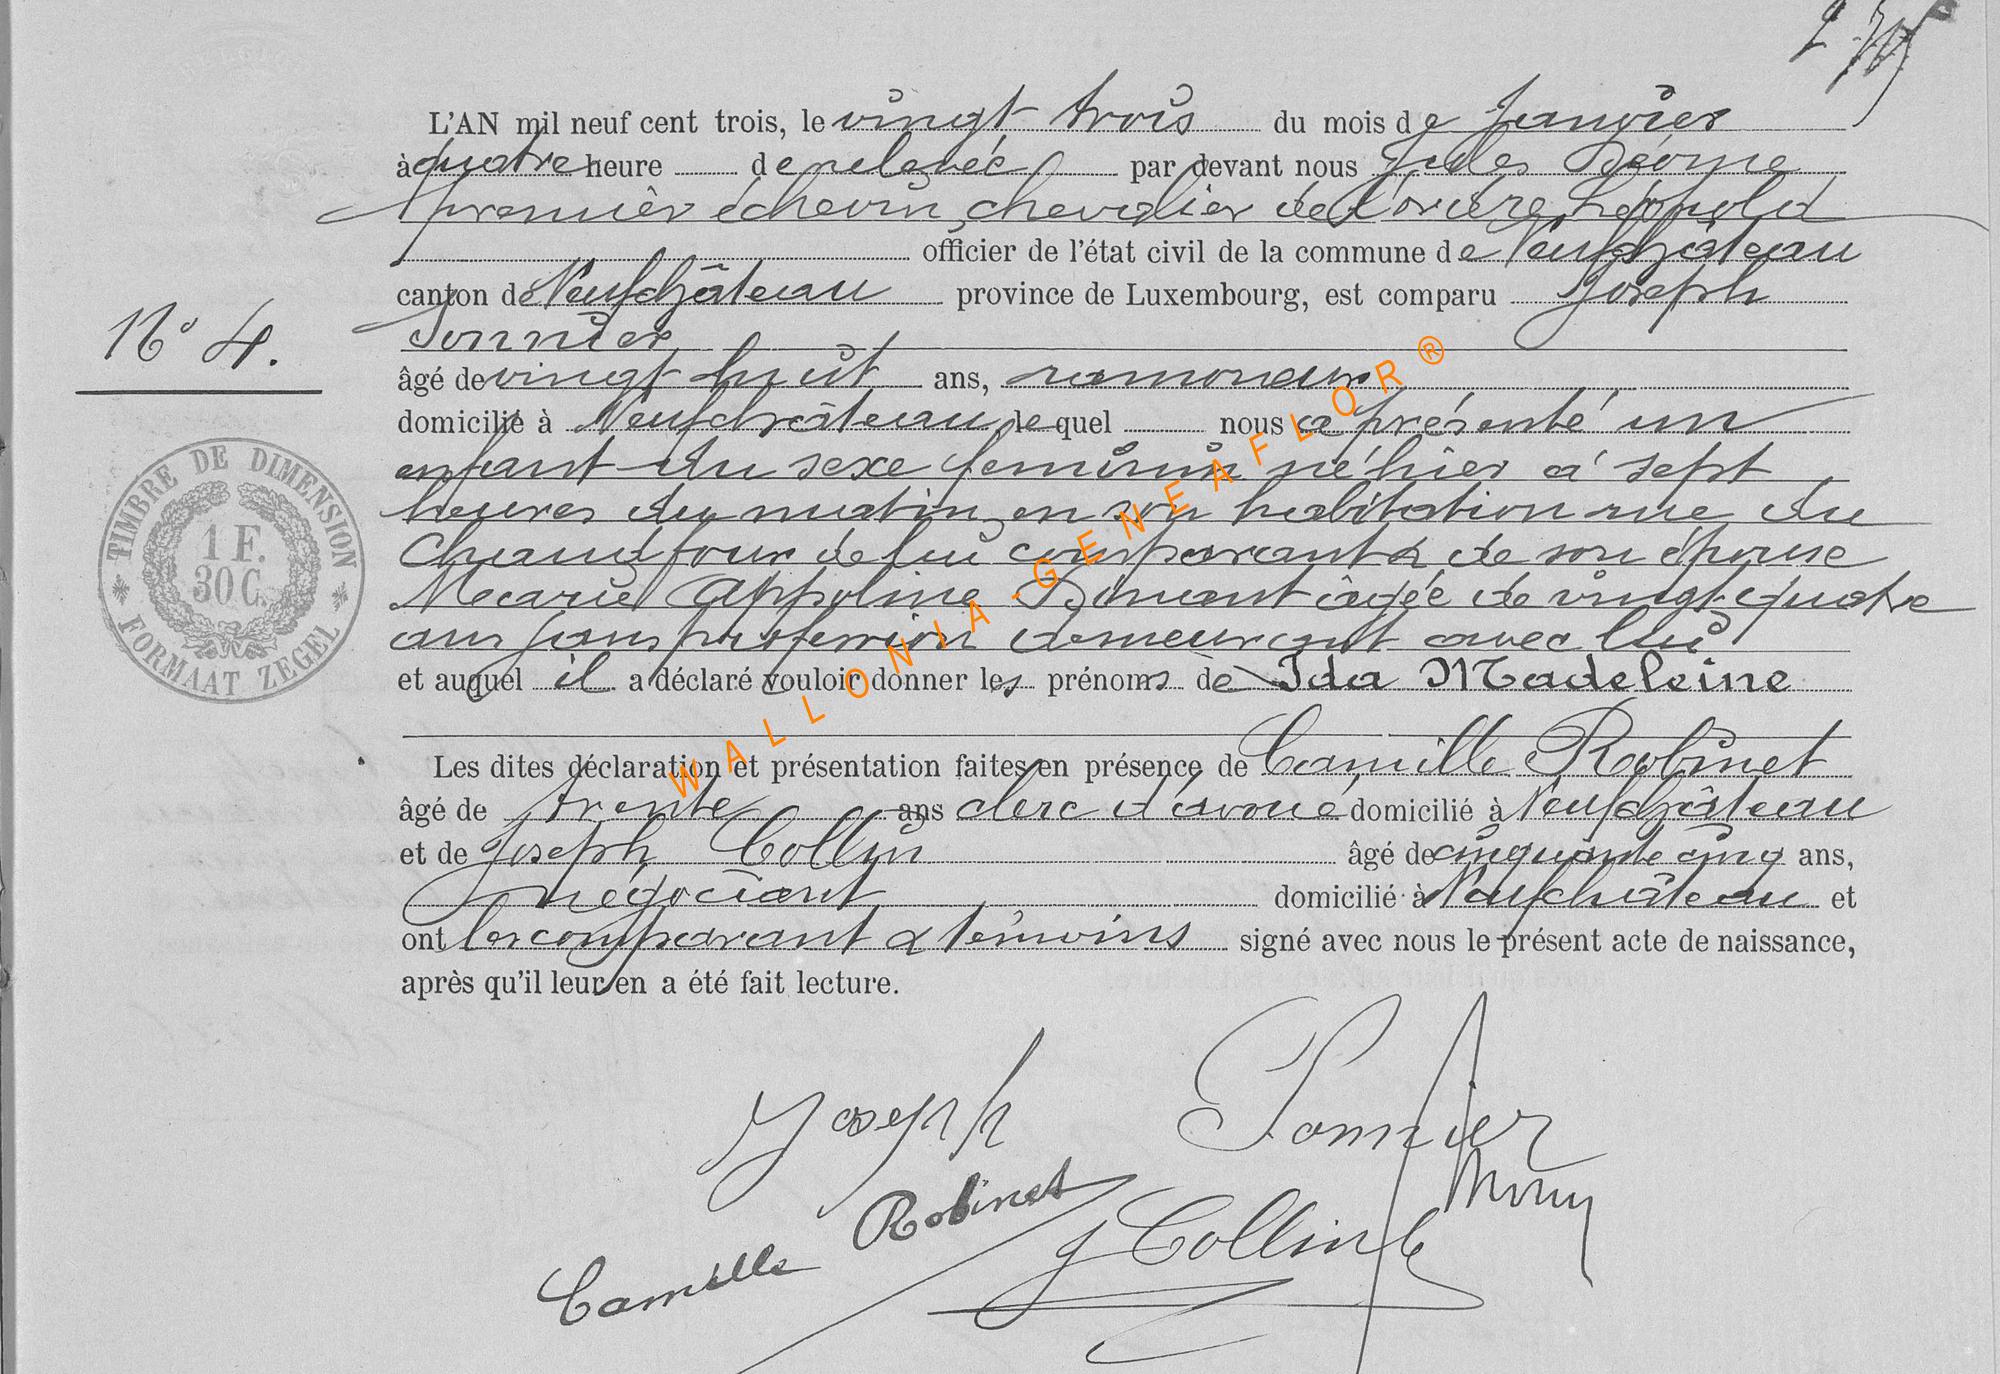 L'AN mil neuf cent trois, le vingt trois du mois de Janvier
à quatre heure de relevée par devant nous Jules
premier échevin, chevalier de l'ordre Léopold
officier de l'état civil de la commune de Neufchâteau
canton de Neufchâteau province de Luxembourg, est comparu Joseph
N° 4.
âgé de vingt huit ans, ramoneur
domicilié à Neufchâteau, lequel nous a présenté un
enfant du sexe féminin né hier à sept
heures du matin, en son habitation rue du
Chaudfour de lui comparant & de son épouse
Marie Appoline Dimant âgée de vingt-quatre
ans sans profession demeurant avec lui
et auquel il a déclaré vouloir donner les prénoms de Ida Madeleine
Les dites déclaration et présentation faites en présence de Camille Robinet
âgé de trente ans clerc d'avoué domicilié à Neufchâteau
et de Joseph Collin âgé de cinquante cinq ans,
négociant domicilié à Neufchâteau et
ont les comparant & témoins signé avec nous le présent acte de naissance,
après qu'il leur en a été fait lecture.
Joseph Ponnier
Camille Robinet
J Collin
TIMBRE DE DIMENSION
1 F.
30 C.
FORMAAT ZEGEL
WALLONIA-GENEAFLOR®